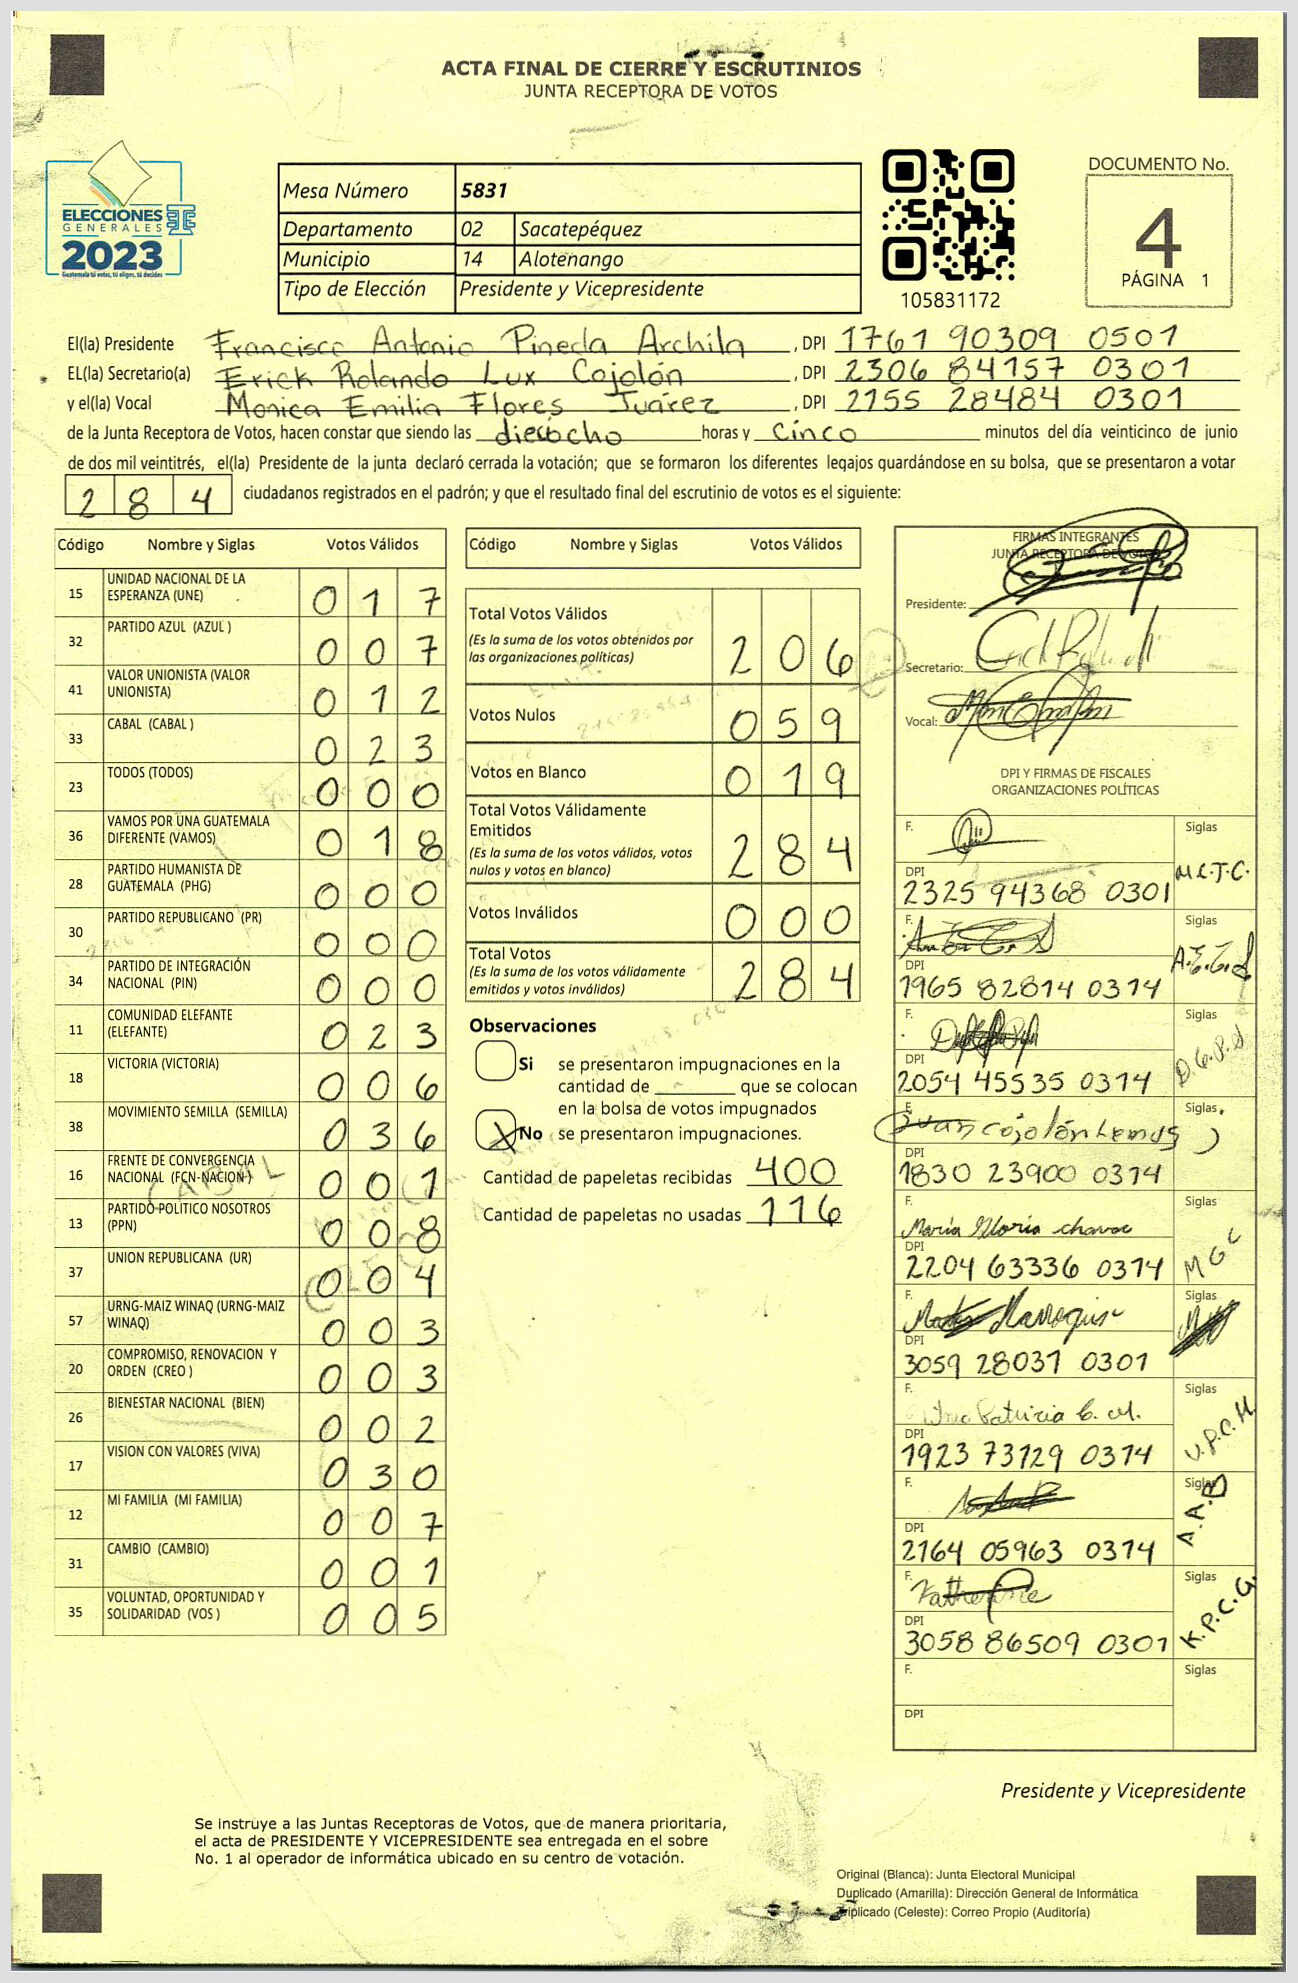 ACTA FINAL DE CIERRE Y ESCRUTINIOS
JUNTA RECEPTORA DE VOTOS
ELECCIONES
GENERALES
2023
Guatemala tú votas, tú eliges, tú decides
Mesa Número 5831
Departamento 02 Sacatepéquez
Municipio 14 Alotenango
Tipo de Elección Presidente y Vicepresidente
105831172
DOCUMENTO No.
4
PÁGINA 1
El(la) Presidente Francisco Antonio Pineda Archila, DPI 1761 90309 0501
EL(la) Secretario(a) Erick Rolando Lux Cojolón, DPI 2306 84157 0301
y el(la) Vocal Monica Emilia Flores Juárez, DPI 2155 28484 0301
de la Junta Receptora de Votos, hacen constar que siendo las dieciocho horas y cinco minutos del día veinticinco de junio
de dos mil veintitrés, el(la) Presidente de la junta declaró cerrada la votación; que se formaron los diferentes legajos guardándose en su bolsa, que se presentaron a votar
284 ciudadanos registrados en el padrón; y que el resultado final del escrutinio de votos es el siguiente:
Código Nombre y Siglas Votos Válidos
15 UNIDAD NACIONAL DE LA ESPERANZA (UNE) 017
32 PARTIDO AZUL (AZUL ) 007
41 VALOR UNIONISTA (VALOR UNIONISTA) 012
33 CABAL (CABAL ) 023
23 TODOS (TODOS) 000
36 VAMOS POR UNA GUATEMALA DIFERENTE (VAMOS) 018
28 PARTIDO HUMANISTA DE GUATEMALA (PHG) 000
30 PARTIDO REPUBLICANO (PR) 000
34 PARTIDO DE INTEGRACIÓN NACIONAL (PIN) 000
11 COMUNIDAD ELEFANTE (ELEFANTE) 023
18 VICTORIA (VICTORIA) 006
38 MOVIMIENTO SEMILLA (SEMILLA) 036
16 FRENTE DE CONVERGENCIA NACIONAL (FCN-NACION) 001
13 PARTIDO POLITICO NOSOTROS (PPN) 008
37 UNION REPUBLICANA (UR) 004
57 URNG-MAIZ WINAQ (URNG-MAIZ WINAQ) 003
20 COMPROMISO, RENOVACION Y ORDEN (CREO ) 003
26 BIENESTAR NACIONAL (BIEN) 002
17 VISION CON VALORES (VIVA) 030
12 MI FAMILIA (MI FAMILIA) 007
31 CAMBIO (CAMBIO) 001
35 VOLUNTAD, OPORTUNIDAD Y SOLIDARIDAD (VOS ) 005
Código Nombre y Siglas Votos Válidos
Total Votos Válidos 206
(Es la suma de los votos obtenidos por
las organizaciones políticas)
Votos Nulos 059
Votos en Blanco 019
Total Votos Válidamente
Emitidos 284
(Es la suma de los votos válidos, votos
nulos y votos en blanco)
Votos Inválidos 000
Total Votos 284
(Es la suma de los votos válidamente
emitidos y votos inválidos)
Observaciones
Si se presentaron impugnaciones en la
cantidad de ________ que se colocan
en la bolsa de votos impugnados
X No se presentaron impugnaciones.
Cantidad de papeletas recibidas 400
Cantidad de papeletas no usadas 116
FIRMAS INTEGRANTES
JUNTA RECEPTORA DE VOTOS
Presidente:
Secretario:
Vocal:
DPI Y FIRMAS DE FISCALES
ORGANIZACIONES POLÍTICAS
F. Siglas M.C.J.C.
DPI
2325 94368 0301
F. Siglas
DPI
1965 82814 0314
F. Siglas D.G.P.S
DPI
2054 45535 0314
F. Juan Cojolón Lemus Siglas
DPI
1830 23900 0314
F. María Gloria chavac Siglas MGC
DPI
2204 63336 0314
F. Marroquin Siglas
DPI
3059 28031 0301
F. Patricia C. M. Siglas V.P.C.M.
DPI
1923 73129 0314
F. Siglas A.A.B
DPI
2164 05963 0314
F. Katherine Siglas K.P.C.G.
DPI
3058 86509 0301
F. Siglas
DPI
Presidente y Vicepresidente
Se instruye a las Juntas Receptoras de Votos, que de manera prioritaria,
el acta de PRESIDENTE Y VICEPRESIDENTE sea entregada en el sobre
No. 1 al operador de informática ubicado en su centro de votación.
Original (Blanca): Junta Electoral Municipal
Duplicado (Amarilla): Dirección General de Informática
Triplicado (Celeste): Correo Propio (Auditoría)